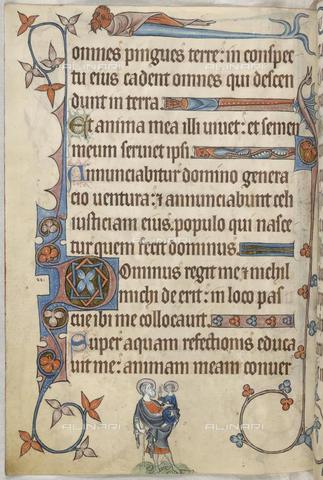 omnes pingues terre: in conspec
tu eius cadent omnes qui descen
dunt in terra.
Et anima mea illi vivet: et semen
meum serviet ipsi.
Annunciabitur domino genera
cio ventura: & annunciabunt celi
iusticiam eius. populo qui nasce
tur quem fecit dominus.
Dominus regit me & nichil
michi de erit: in loco pas
cue ibi me collocavit.
Super aquam refectionis educa
vit me: animam meam conver
ALINARI
ALINARI
ALINARI
ALINARI